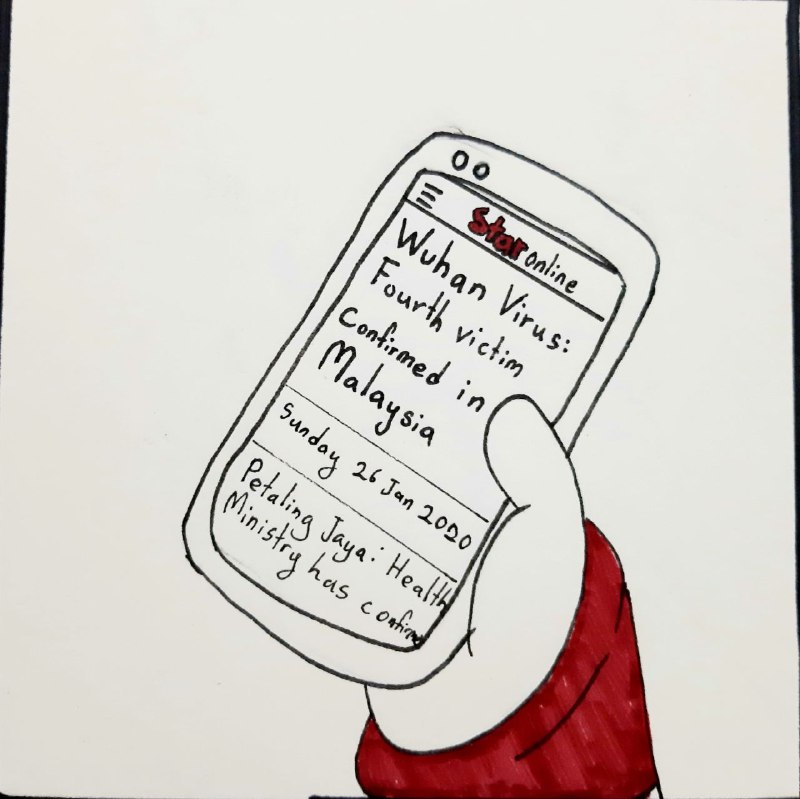 Star online
Wuhan Virus:
Fourth victim
Confirmed in
Malaysia
Sunday 26 Jan 2020
Petaling Jaya: Health
Ministry has confirm